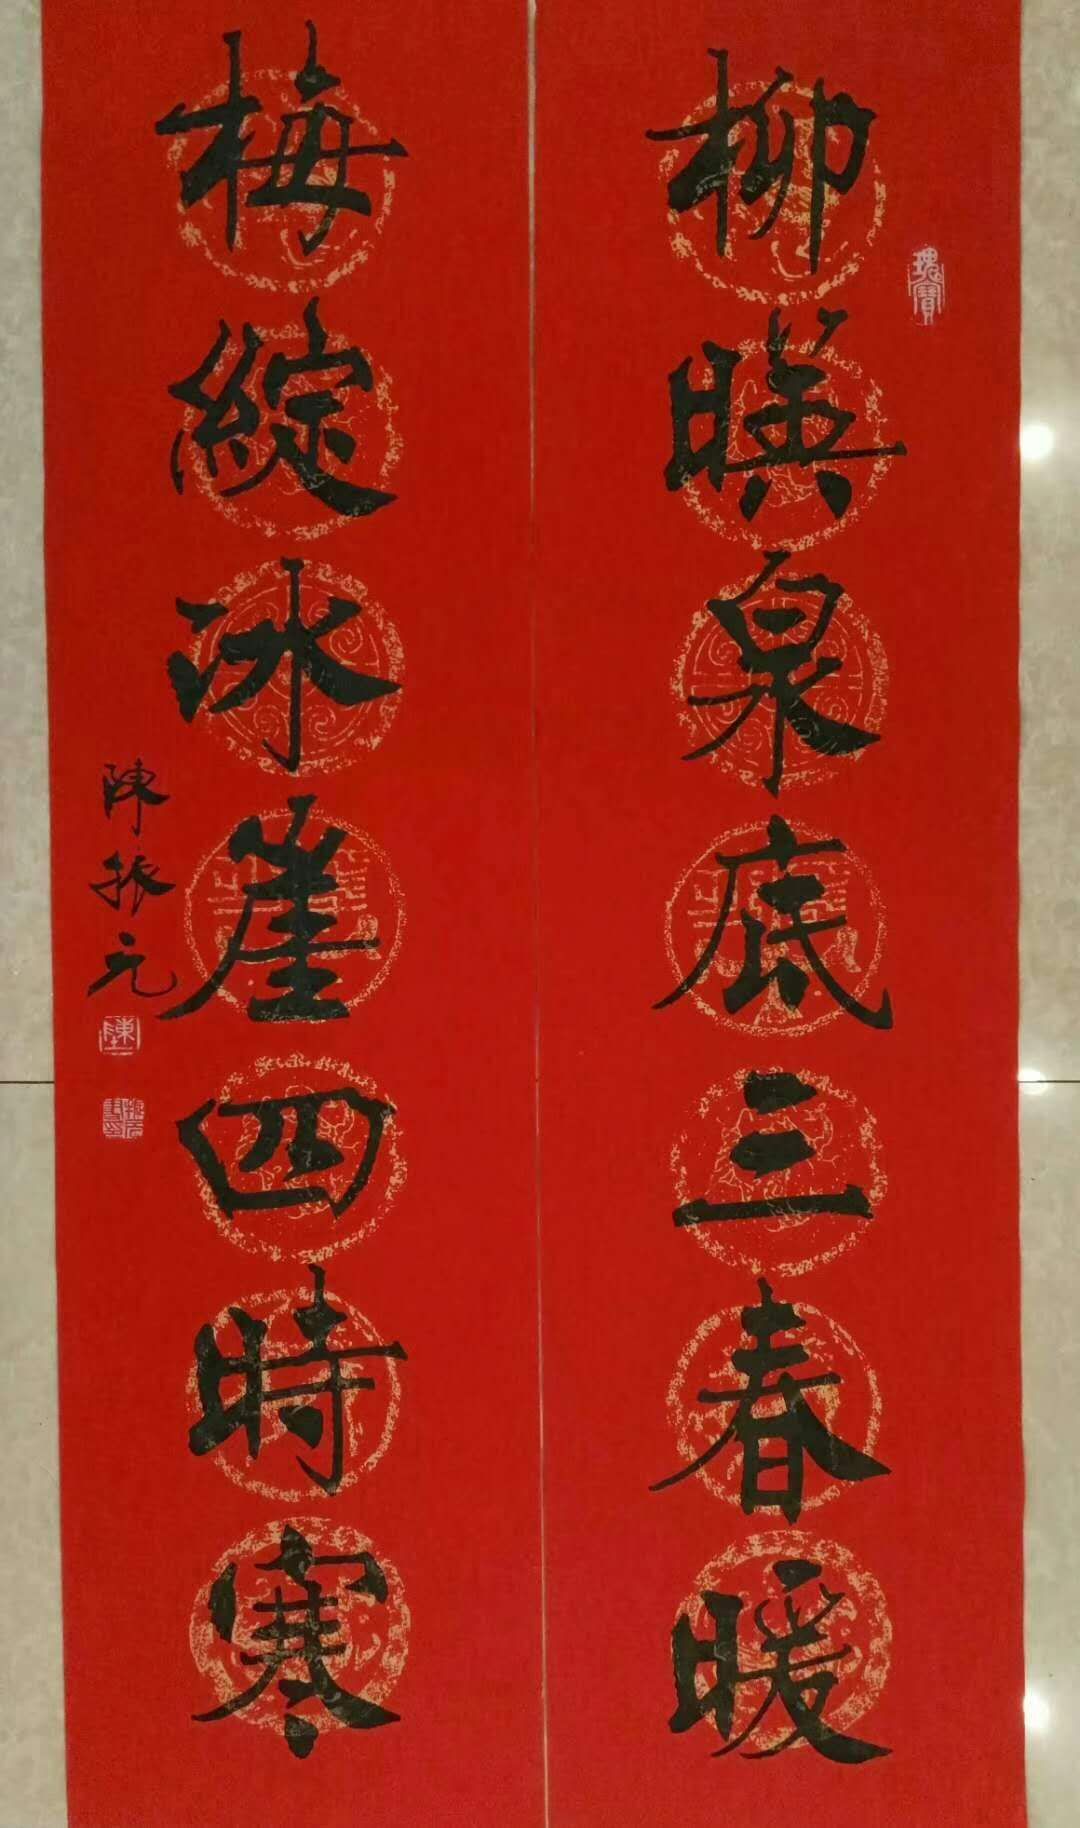 柳暎泉底三春暖
梅綻冰崖四時寒
陳振元
瑰寶
陳